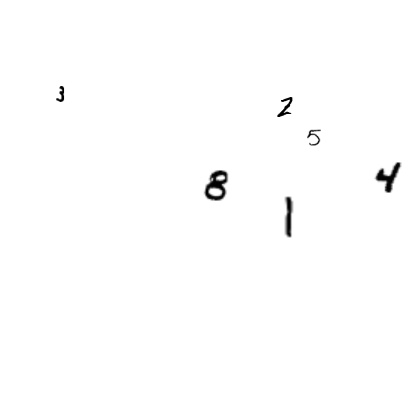 3
2
5
8
4
1